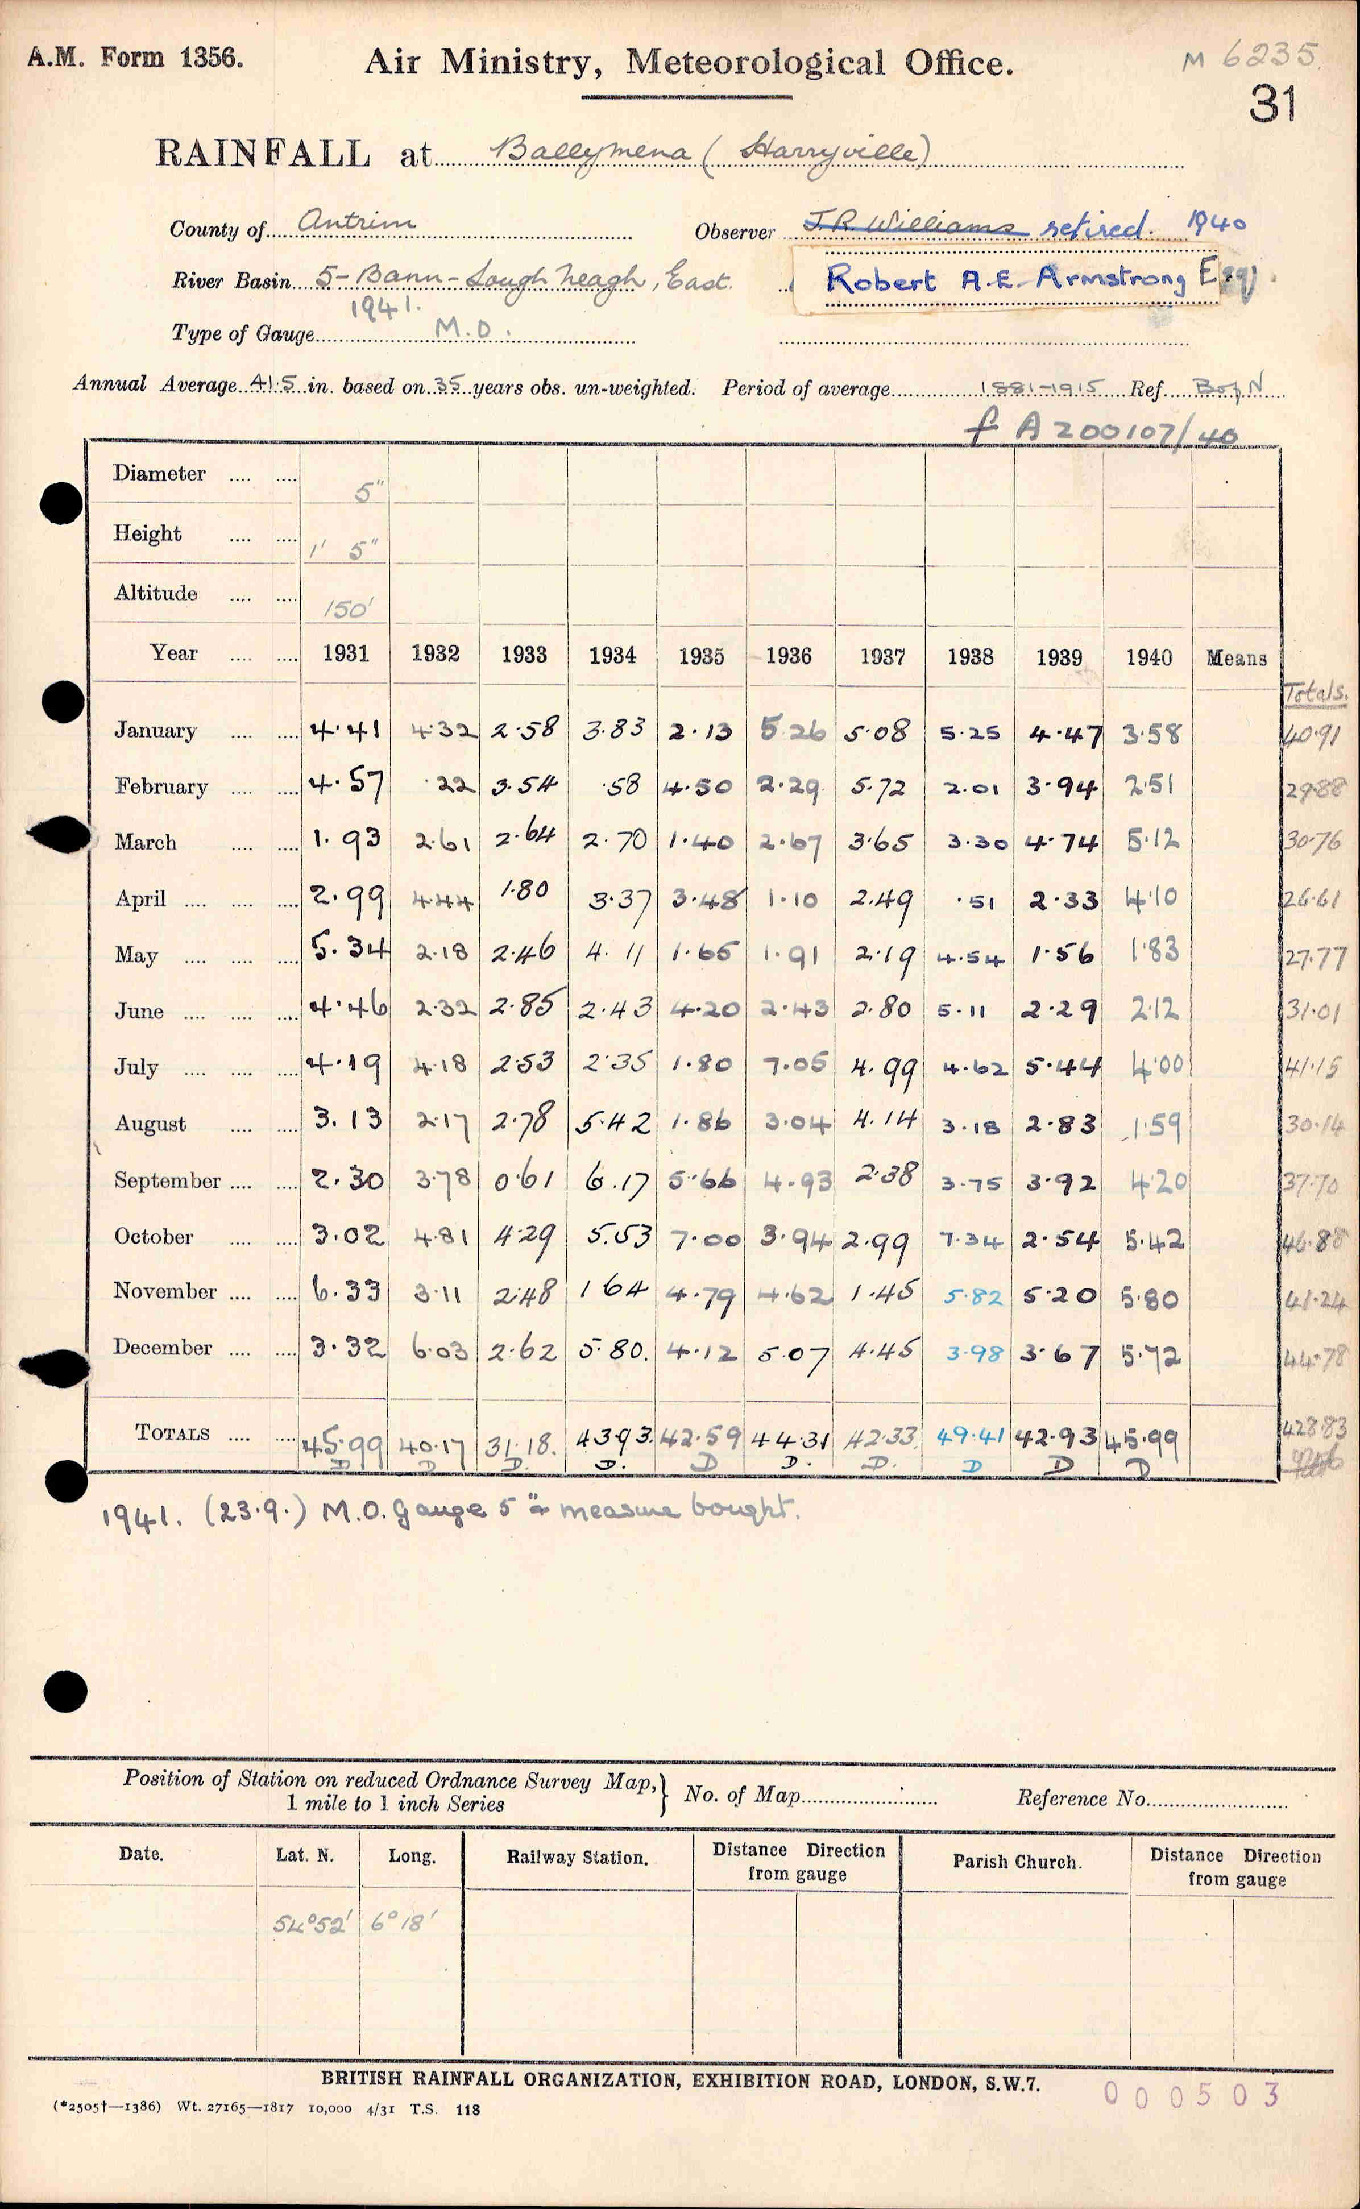 A.M. Form 1356.
Air Ministry, Meteorological Office.
M 6235.
31
RAINFALL at Ballymena (Harryville)
County of Antrim Observer J.R Williams retired. 1940
River Basin 5-Bann-Lough Neagh, East. Robert A.E. Armstrong Esq.
1941.
Type of Gauge M.O.
Annual Average 41.5 in. based on 35 years obs. un-weighted. Period of average 1881-1915 Ref.
f A 200107/40
Diameter 5"
Height 1' 5"
Altitude 150'
Year 1931 1932 1933 1934 1935 1936 1937 1938 1939 1940 Means
Totals.
January 4.41 4.32 2.58 3.83 2.13 5.26 5.08 5.25 4.47 3.58 40.91
February 4.57 .22 3.54 .58 4.50 2.29 5.72 2.01 3.94 2.51 29.88
March 1.93 2.61 2.64 2.70 1.40 2.67 3.65 3.30 4.74 5.12 30.76
April 2.99 4.44 1.80 3.37 3.48 1.10 2.49 .51 2.33 4.10 26.61
May 5.34 2.18 2.46 4.11 1.65 1.91 2.19 4.54 1.56 1.83 27.77
June 4.46 2.32 2.85 2.43 4.20 2.43 2.80 5.11 2.29 2.12 31.01
July 4.19 4.18 2.53 2.35 1.80 7.05 4.99 4.62 5.44 4.00 41.15
August 3.13 2.17 2.78 5.42 1.86 3.04 4.14 3.18 2.83 1.59 30.14
September 2.30 3.78 0.61 6.17 5.66 4.93 2.38 3.75 3.92 4.20 37.70
October 3.02 4.81 4.29 5.53 7.00 3.94 2.99 7.34 2.54 5.42 46.88
November 6.33 3.11 2.48 1.64 4.79 4.62 1.45 5.82 5.20 5.80 41.24
December 3.32 6.03 2.62 5.80. 4.12 5.07 4.45 3.98 3.67 5.72 44.78
TOTALS 45.99 40.17 31.18. 43.93. 42.59 44.31 42.33. 49.41 42.93 45.99 428.83
D D D. D. D D. D. D D D
1941. (23.9.) M.O. Gauge 5" & measure bought.
Position of Station on reduced Ordnance Survey Map,} No. of Map Reference No.
1 mile to 1 inch Series
Date. Lat. N. Long. Railway Station. Distance Direction Parish Church. Distance Direction
from gauge from gauge
54°52' 6°18'
BRITISH RAINFALL ORGANIZATION, EXHIBITION ROAD, LONDON, S.W.7.
000503
(*2505†—1386) Wt. 27165—1817 10,000 4/31 T.S. 118